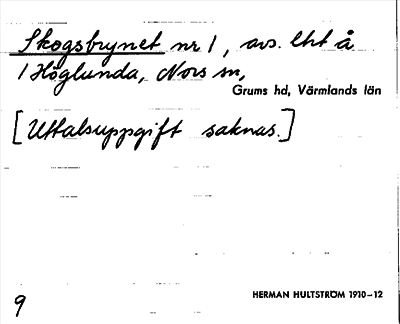 Skogsbrynet nr 1, avs. lht å
1 Höglunda, Nors sn,
Grums hd, Värmlands län
[Uttalsuppgift saknas.]
HERMAN HULTSTRÖM 1910–12
9